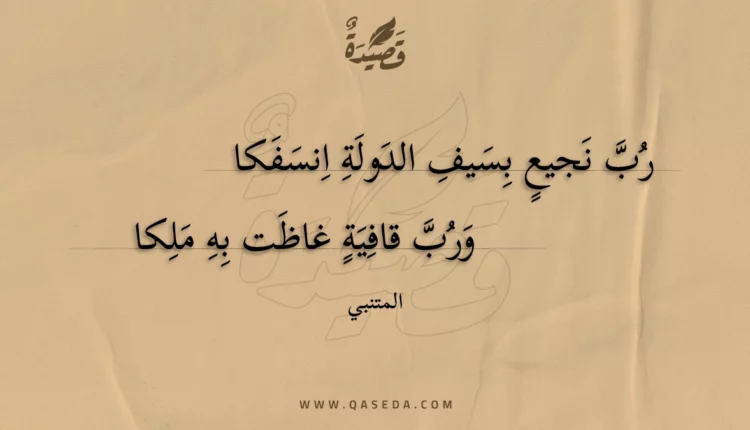 قَصِيدَةٌ
رُبَّ نَجيعٍ بِسَيفِ الدَولَةِ اِنسَفَكا
وَرُبَّ قافِيَةٍ غاظَت بِهِ مَلِكا
المتنبي
WWW.QASEDA.COM